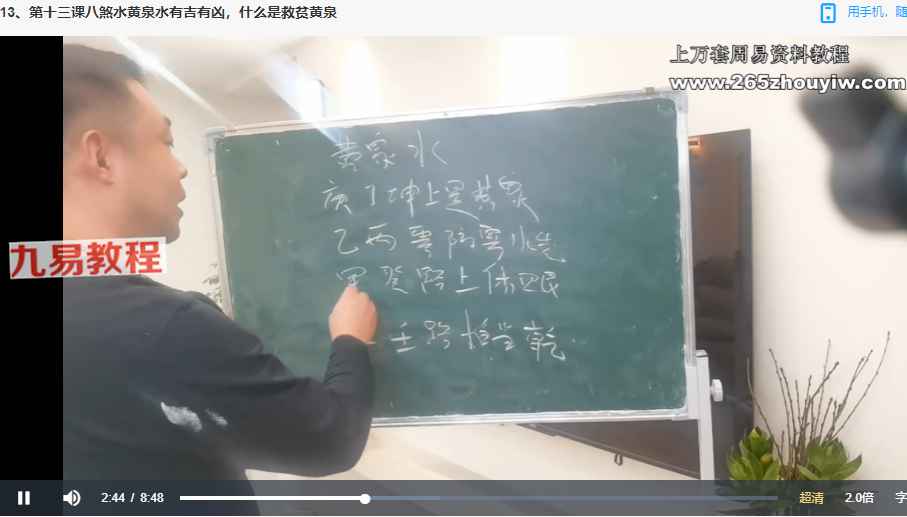 13、第十三课八煞水黄泉水有吉有凶，什么是救贫黄泉
用手机，随
上万套周易资料教程
www.265zhouyiw.com
黄泉水
庚丁坤上是黄泉
乙丙要防巽水先
甲癸路上休见艮
壬路怕当乾
九易教程
2:44 / 8:48
超清
2.0倍
字